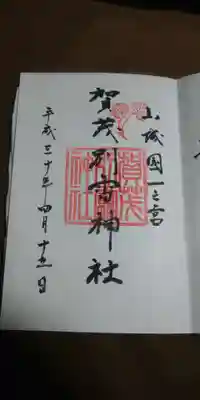 山城國一之宮
賀茂別雷神社
平成三十年四月十五日
賀茂
神社